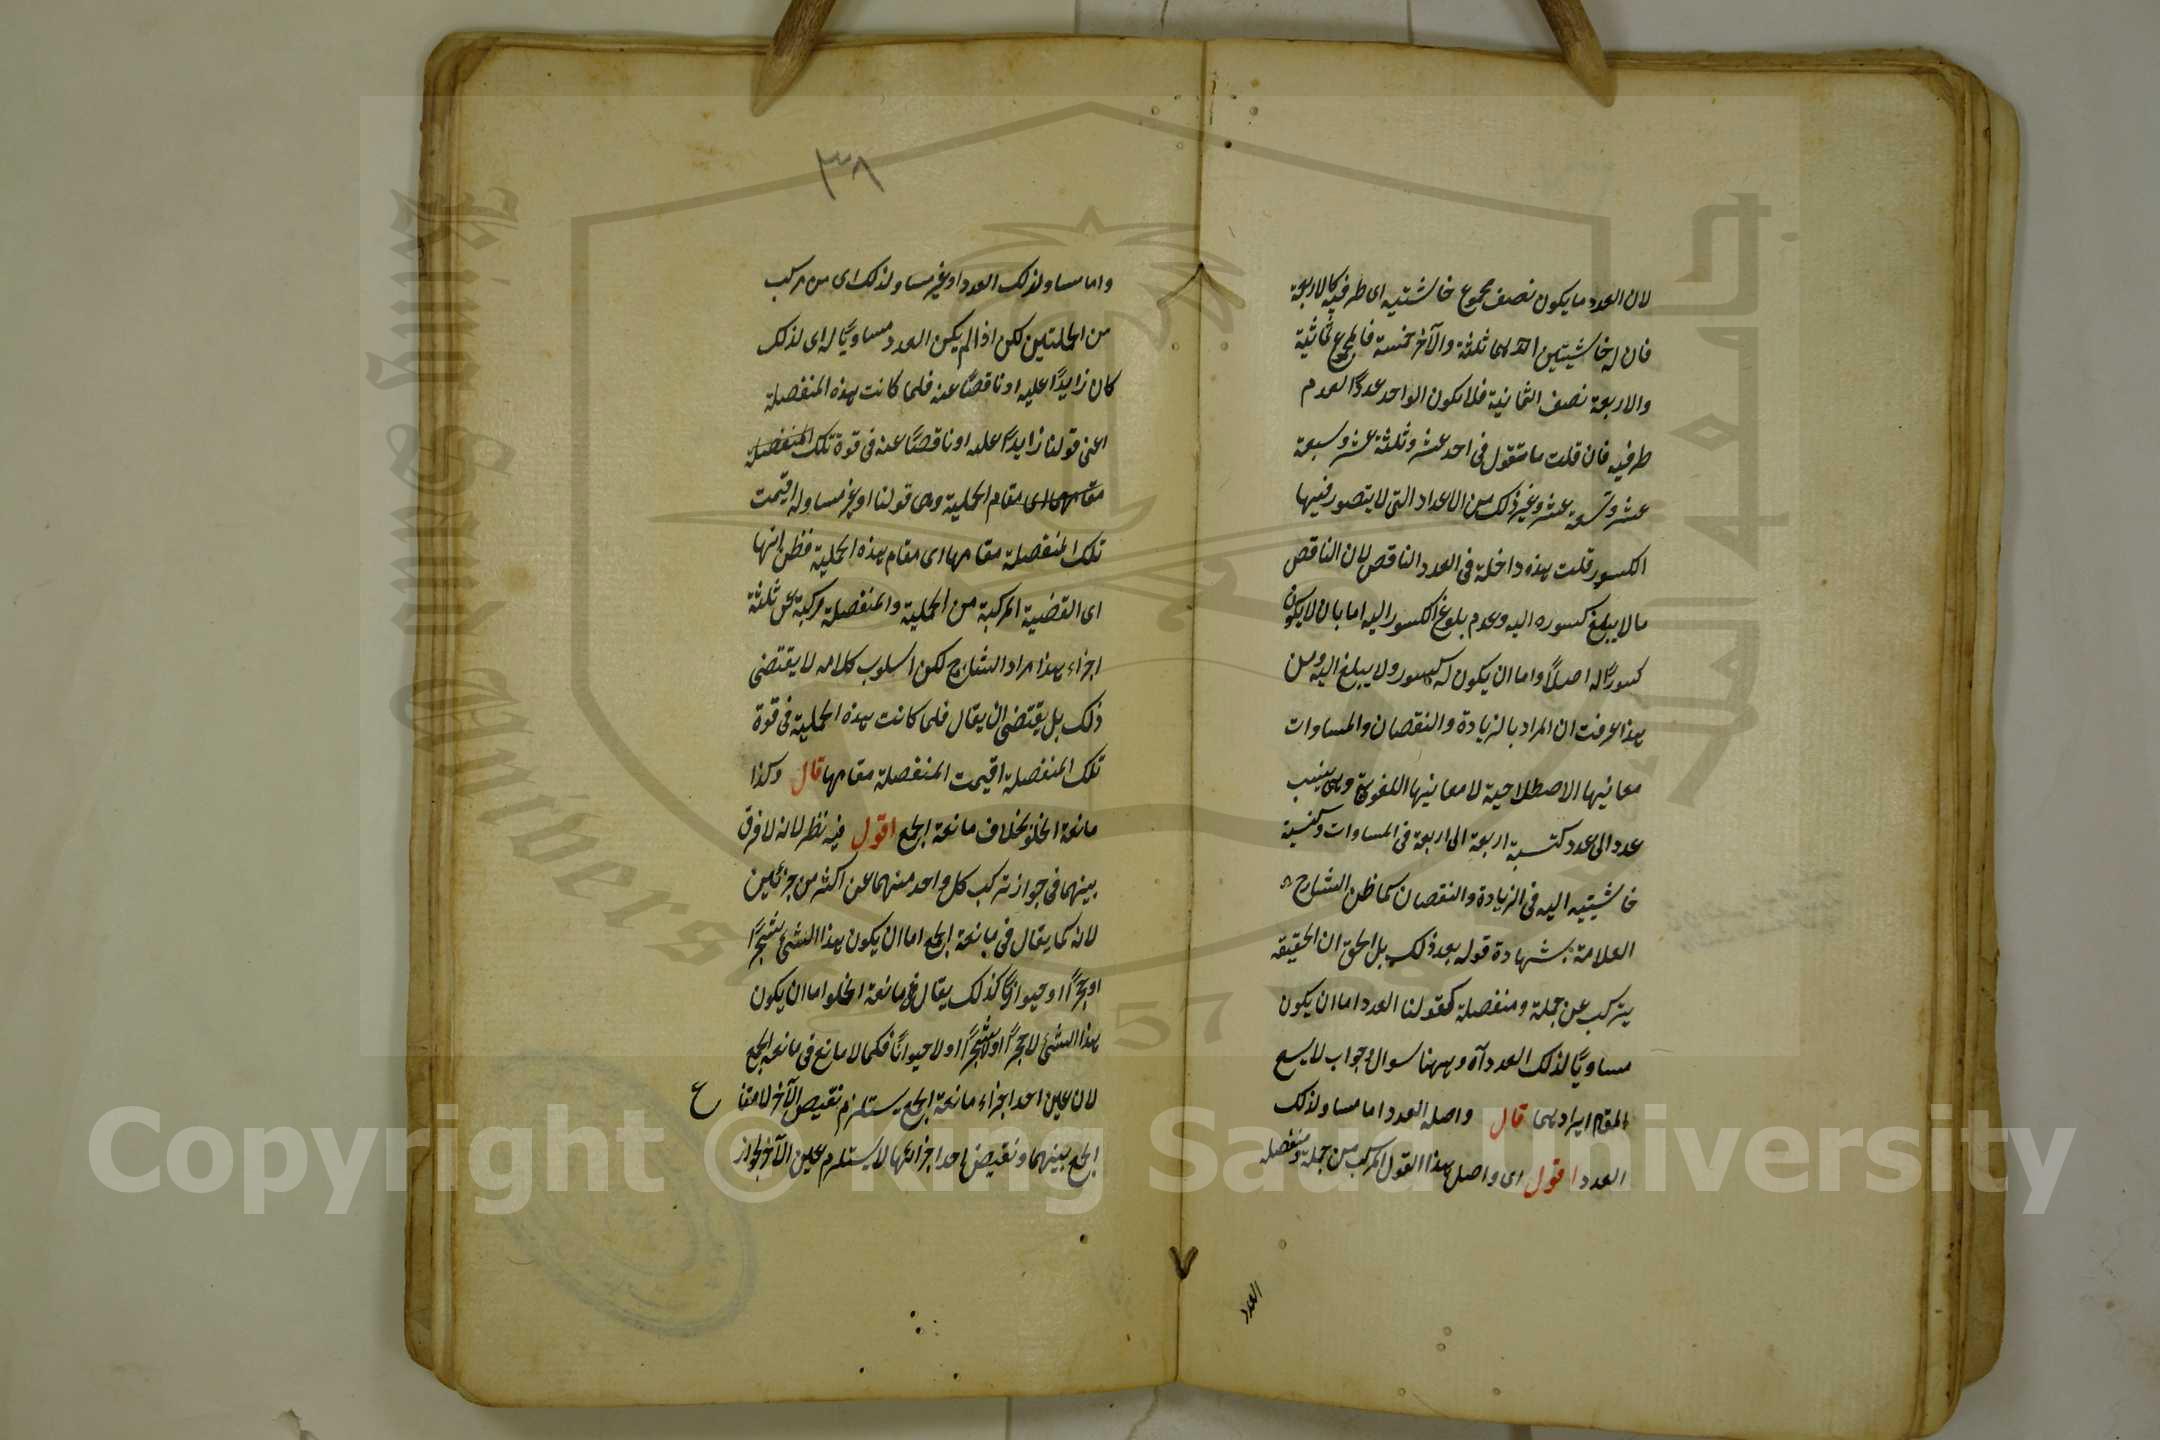 لان العدد ما يكون نصف مجموع حاشيتيه اى طرفيه كالاربعة
فان له حاشيتين احديهما ثلثة والآخر خمسة فالمجموع ثمانية
والاربعة نصف الثمانية فلا يكون الواحد عددًا لعدم
طرفيه فان قلت ما تقول فى احد عشر وثلثة عشر وسبعة
عشر وتسعة عشر وغير ذلك من الاعداد التى لا يتصور فيها
الكسور قلت هذه داخلة فى العدد الناقص لان الناقص
ما لا يبلغ كسوره اليه وعدم بلوغ الكسور اليه اما بان لا يكون
كسورًا له اصلاً واما ان يكون له كسور ولا يبلغ اليه ومن
هذا عرفت ان المراد بالزيادة والنقصان والمساوات
معانيها الاصطلاحية لا معانيها اللغوية وهى نسب
عدد الى عدد كنسبة اربعة الى اربعة فى المساوات وكنسبة
حاشيتيه اليه فى الزيادة والنقصان كما ظن الشارح
العلامة بشهادة قوله بعد ذلك بل الحق ان الحقيقه
يتركب عن حملية ومنفصلة كقولنا العدد اما ان يكون
مساويًا لذلك العدد آه وههنا سوال وجواب لا يسع
المقام ايرادهما قال واصله العدد اما مساو لذلك
العدد اقول اى واصل هذا القول المركب من حملية ومنفصلة
العدد
٣٨
واما مساو لذلك العدد او غير مساو لذلك اى من مركب
من الحمليتين لكن اذا لم يكن العدد مساويًا له اى لذلك
كان زايدًا عليه او ناقصًا عنه فلما كانت هذه المنفصلة
اعنى قولنا زايدًا عليه او ناقصًا عنه فى قوة تلك المنفصلة
مقامها اى مقام الحملية وهى قولنا او غير مساو له اقيمت
تلك المنفصلة مقامها اى مقام هذه الحملية فظن انها
اى القضية المركبة من الحملية والمنفصلة مركبة عن ثلثة
اجزاء هذا مراد الشارح لكن اسلوب كلامه لا يقتضى
ذلك بل يقتضى ان يقال فلما كانت هذه الحملية فى قوة
تلك المنفصلة اقيمت المنفصلة مقامها قال وكذا
مانعة الخلو بخلاف مانعة الجمع اقول فيه نظر لانه لا فرق
بينهما فى جواز تركب كل واحد منهما عن اكثر من جزئين
لانه كما يقال فى مانعة الجمع اما ان يكون هذا الشئ شجرًا
او حجرًا او حيوانًا كذلك يقال فى مانعة الخلو اما ان يكون
هذا الشئ لا حجرًا او لا شجرًا او لا حيوانًا فكما لا مانع فى مانعة الجمع
لان عين احد اجزاء مانعة الجمع يستلزم نقيض الآخر لامتناع
الجمع بينهما ونقيض احد اجزائها لا يستلزم عين الآخر لجواز
Copyright © King Saud University
King Saud University
1957